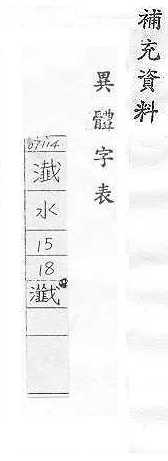 補充資料
異體字表
07114
瀐
水
15
18
瀸